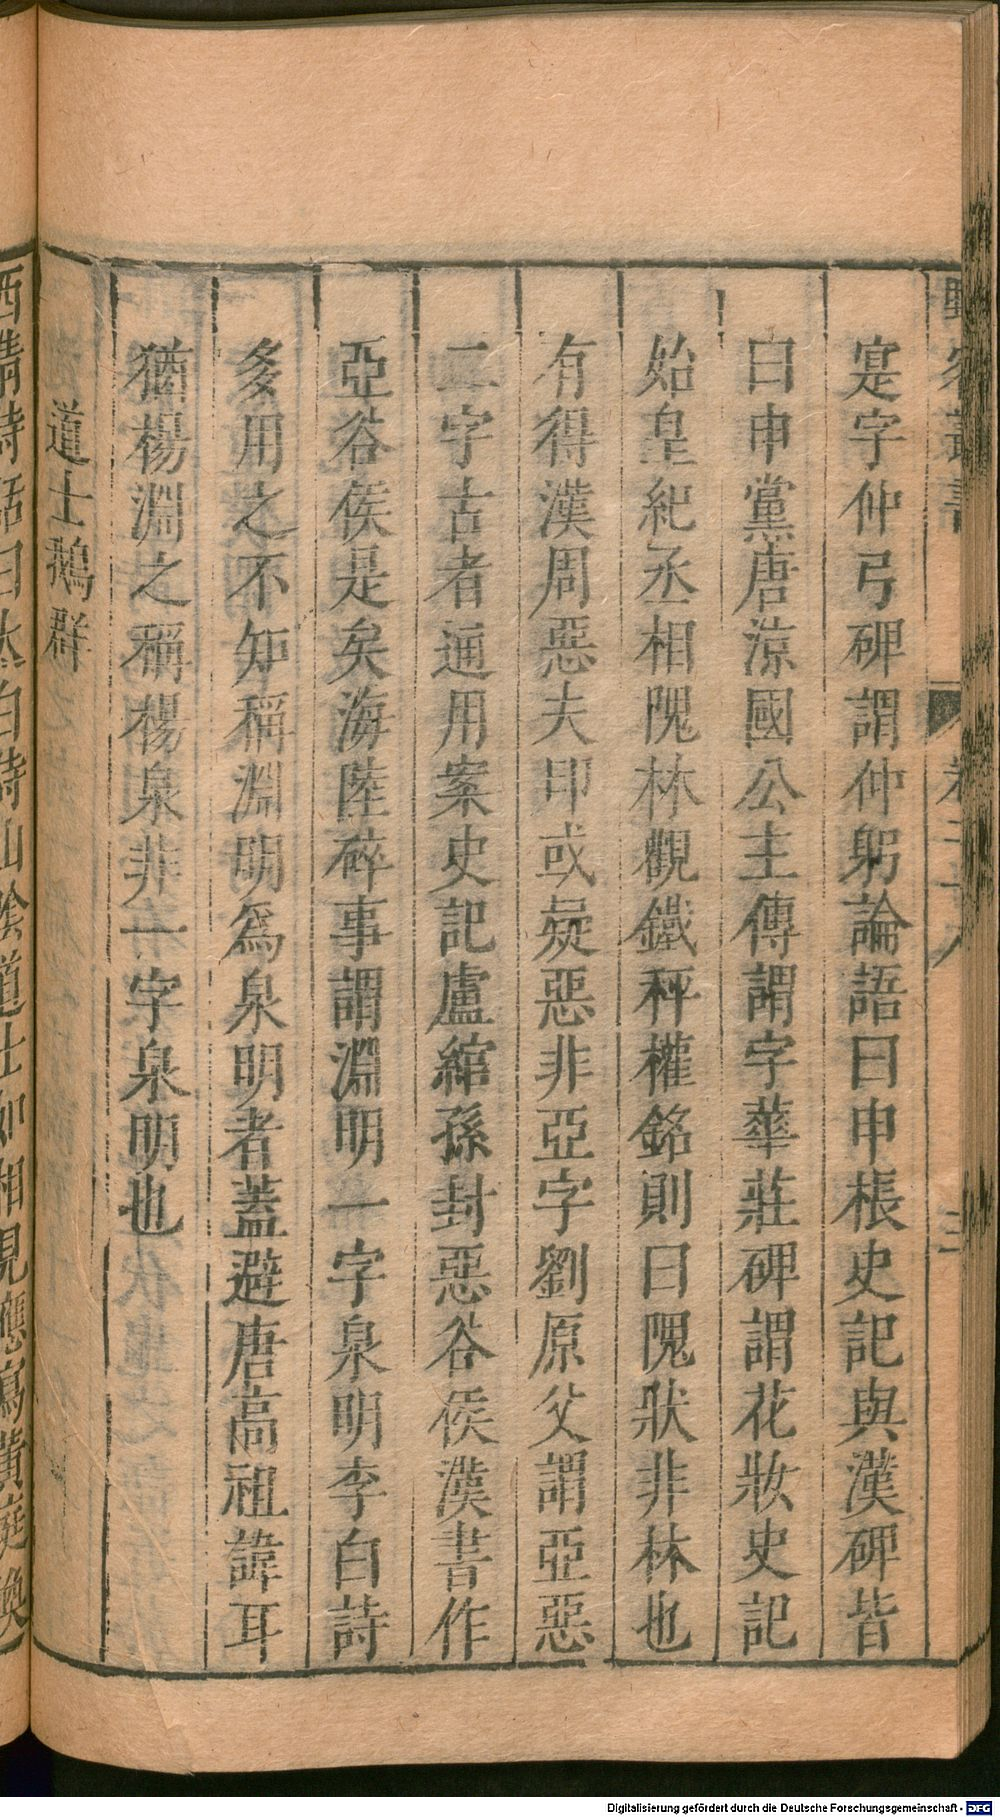 寔字仲弓碑謂仲躬論語曰申棖史記與漢碑皆
曰申黨唐涼國公主傳謂字華莊碑謂花妝史記
始皇紀丞相隗林觀鐵秤權銘則曰隗狀非林也
有得漢周惡夫印或疑惡非亞字劉原父謂亞惡
二字古者通用案史記盧綰孫封惡谷侯漢書作
亞谷侯是矣海陸碎事謂淵明一字泉明李白詩
多用之不知稱淵明為泉明者蓋避唐高祖諱耳
猶楊淵之稱楊泉非一字泉明也
道士鵝群
西清詩話曰太白詩山陰道士如相見應寫黃庭換
Digitalisierung gefördert durch die Deutsche Forschungsgemeinschaft - DFG